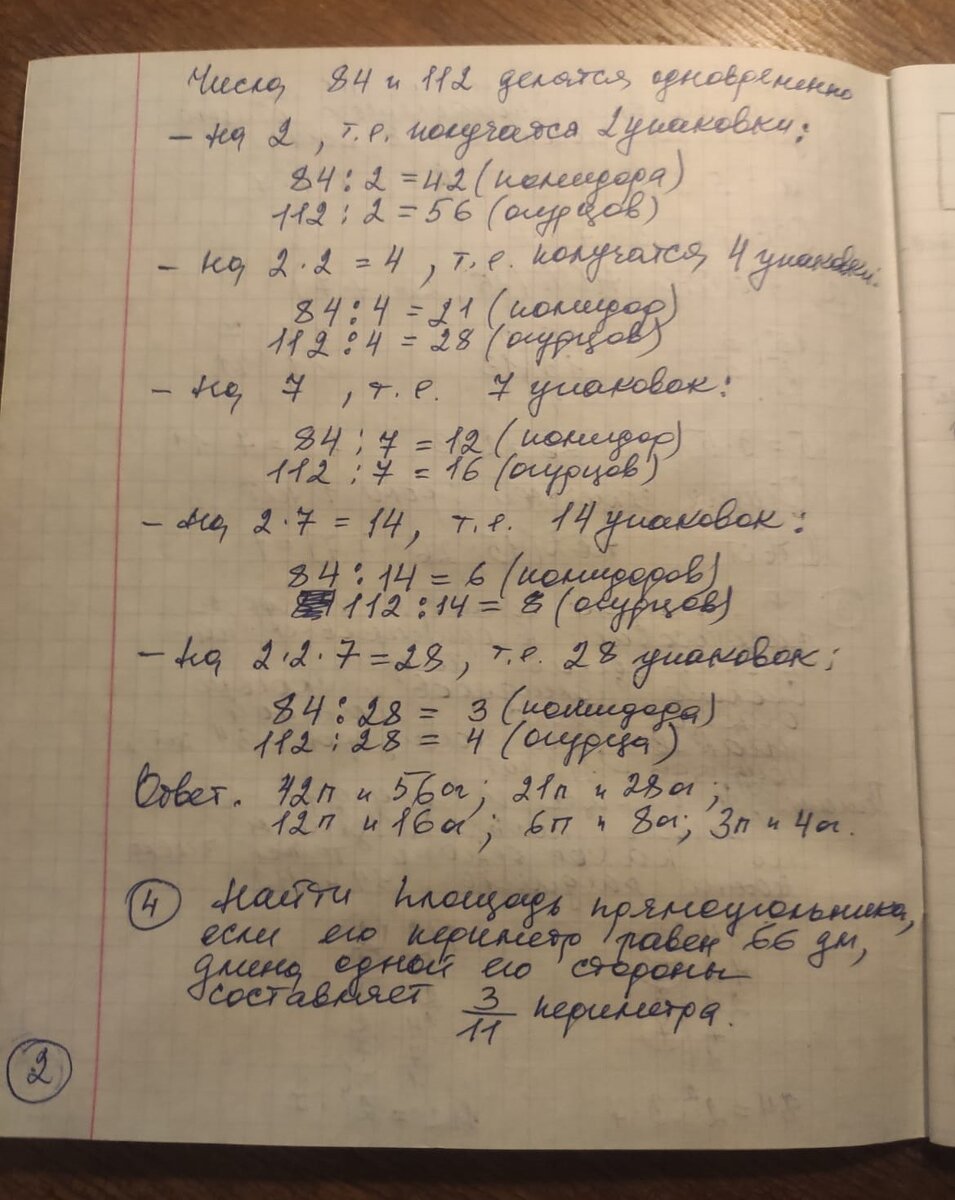 Числа 84 и 112 делятся одновременно
– на 2, т.е. получатся 2 упаковки:
84 : 2 = 42 (помидора)
112 : 2 = 56 (огурцов)
– на 2·2 = 4, т.е. получатся 4 упаковки:
84 : 4 = 21 (помидор)
112 : 4 = 28 (огурцов)
– на 7, т.е. 7 упаковок:
84 : 7 = 12 (помидор)
112 : 7 = 16 (огурцов)
– на 2·7 = 14, т.е. 14 упаковок:
84 : 14 = 6 (помидоров)
112 : 14 = 8 (огурцов)
– на 2·2·7 = 28, т.е. 28 упаковок:
84 : 28 = 3 (помидора)
112 : 28 = 4 (огурца)
Ответ. 42п и 56о; 21п и 28о;
12п и 16о; 6п и 8о; 3п и 4о.
4 Найти площадь прямоугольника,
если его периметр равен 66 дм,
длина одной его стороны
составляет 3/11 периметра.
2